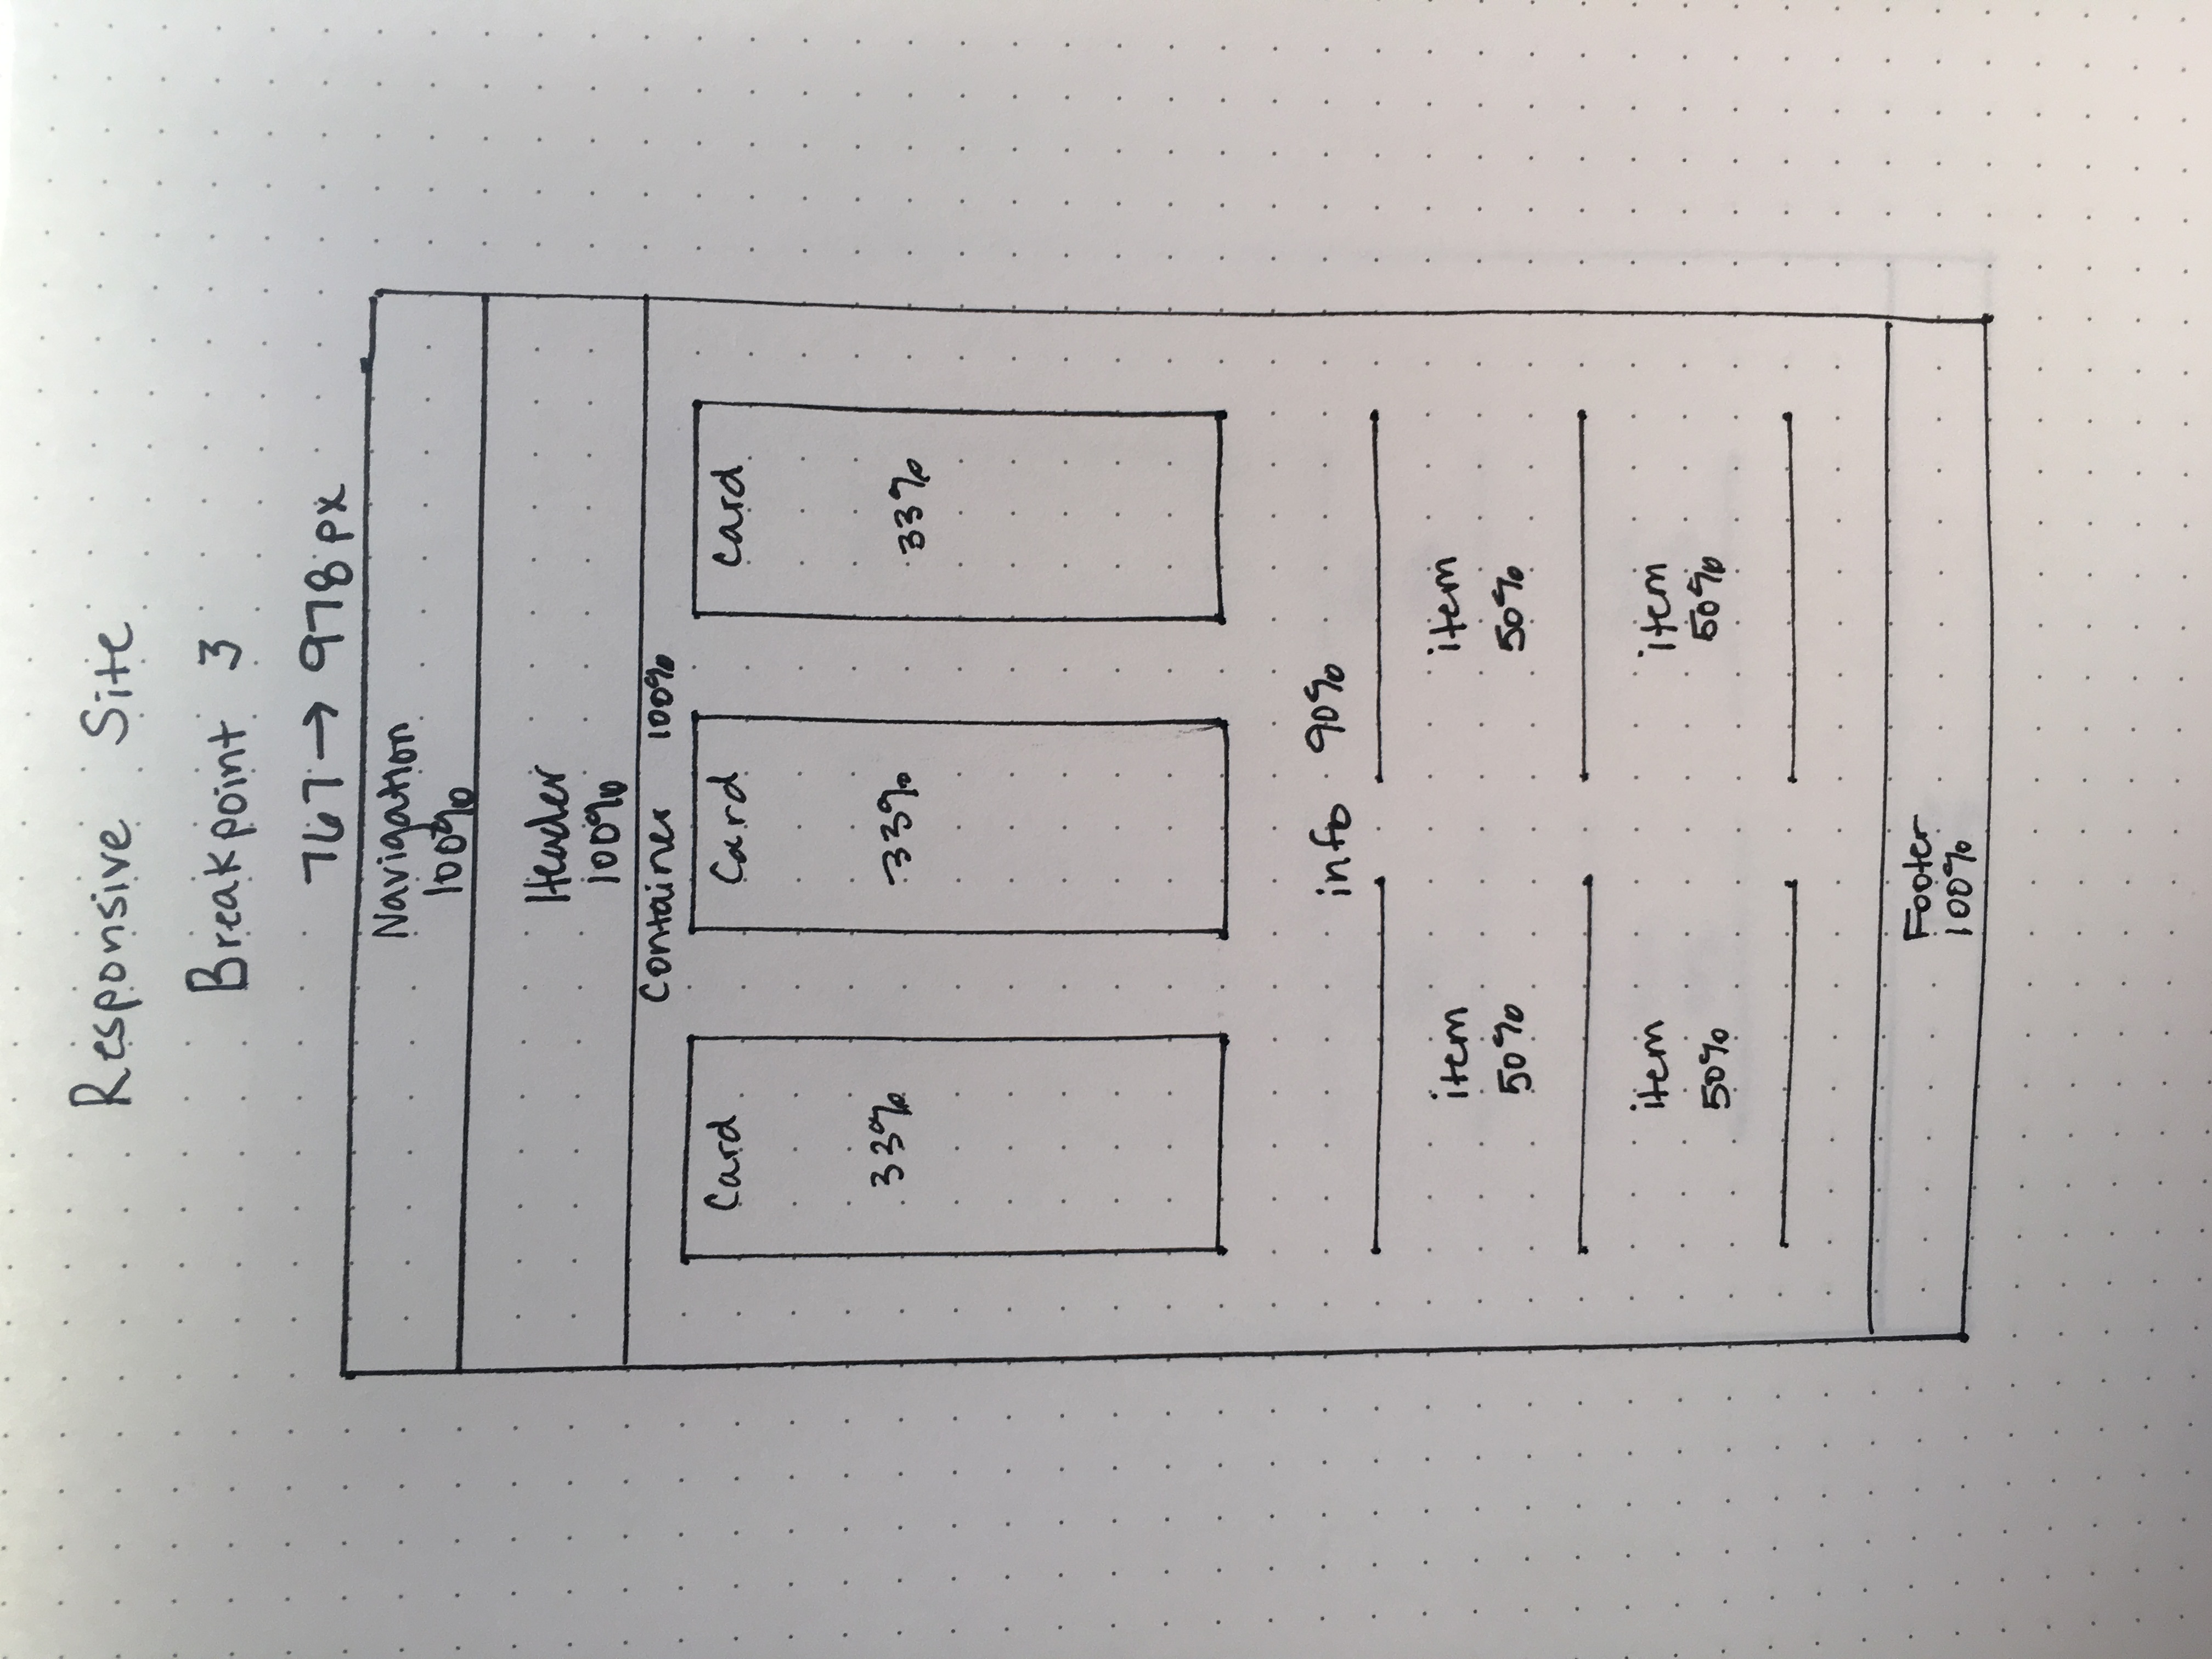 Responsive Site
Breakpoint 3
767 → 978 px
Navigation
100%
Header
100%
Container 100%
Card Card Card
33% 33% 33%
info 90%
item item
50% 50%
item item
50% 50%
Footer
100%